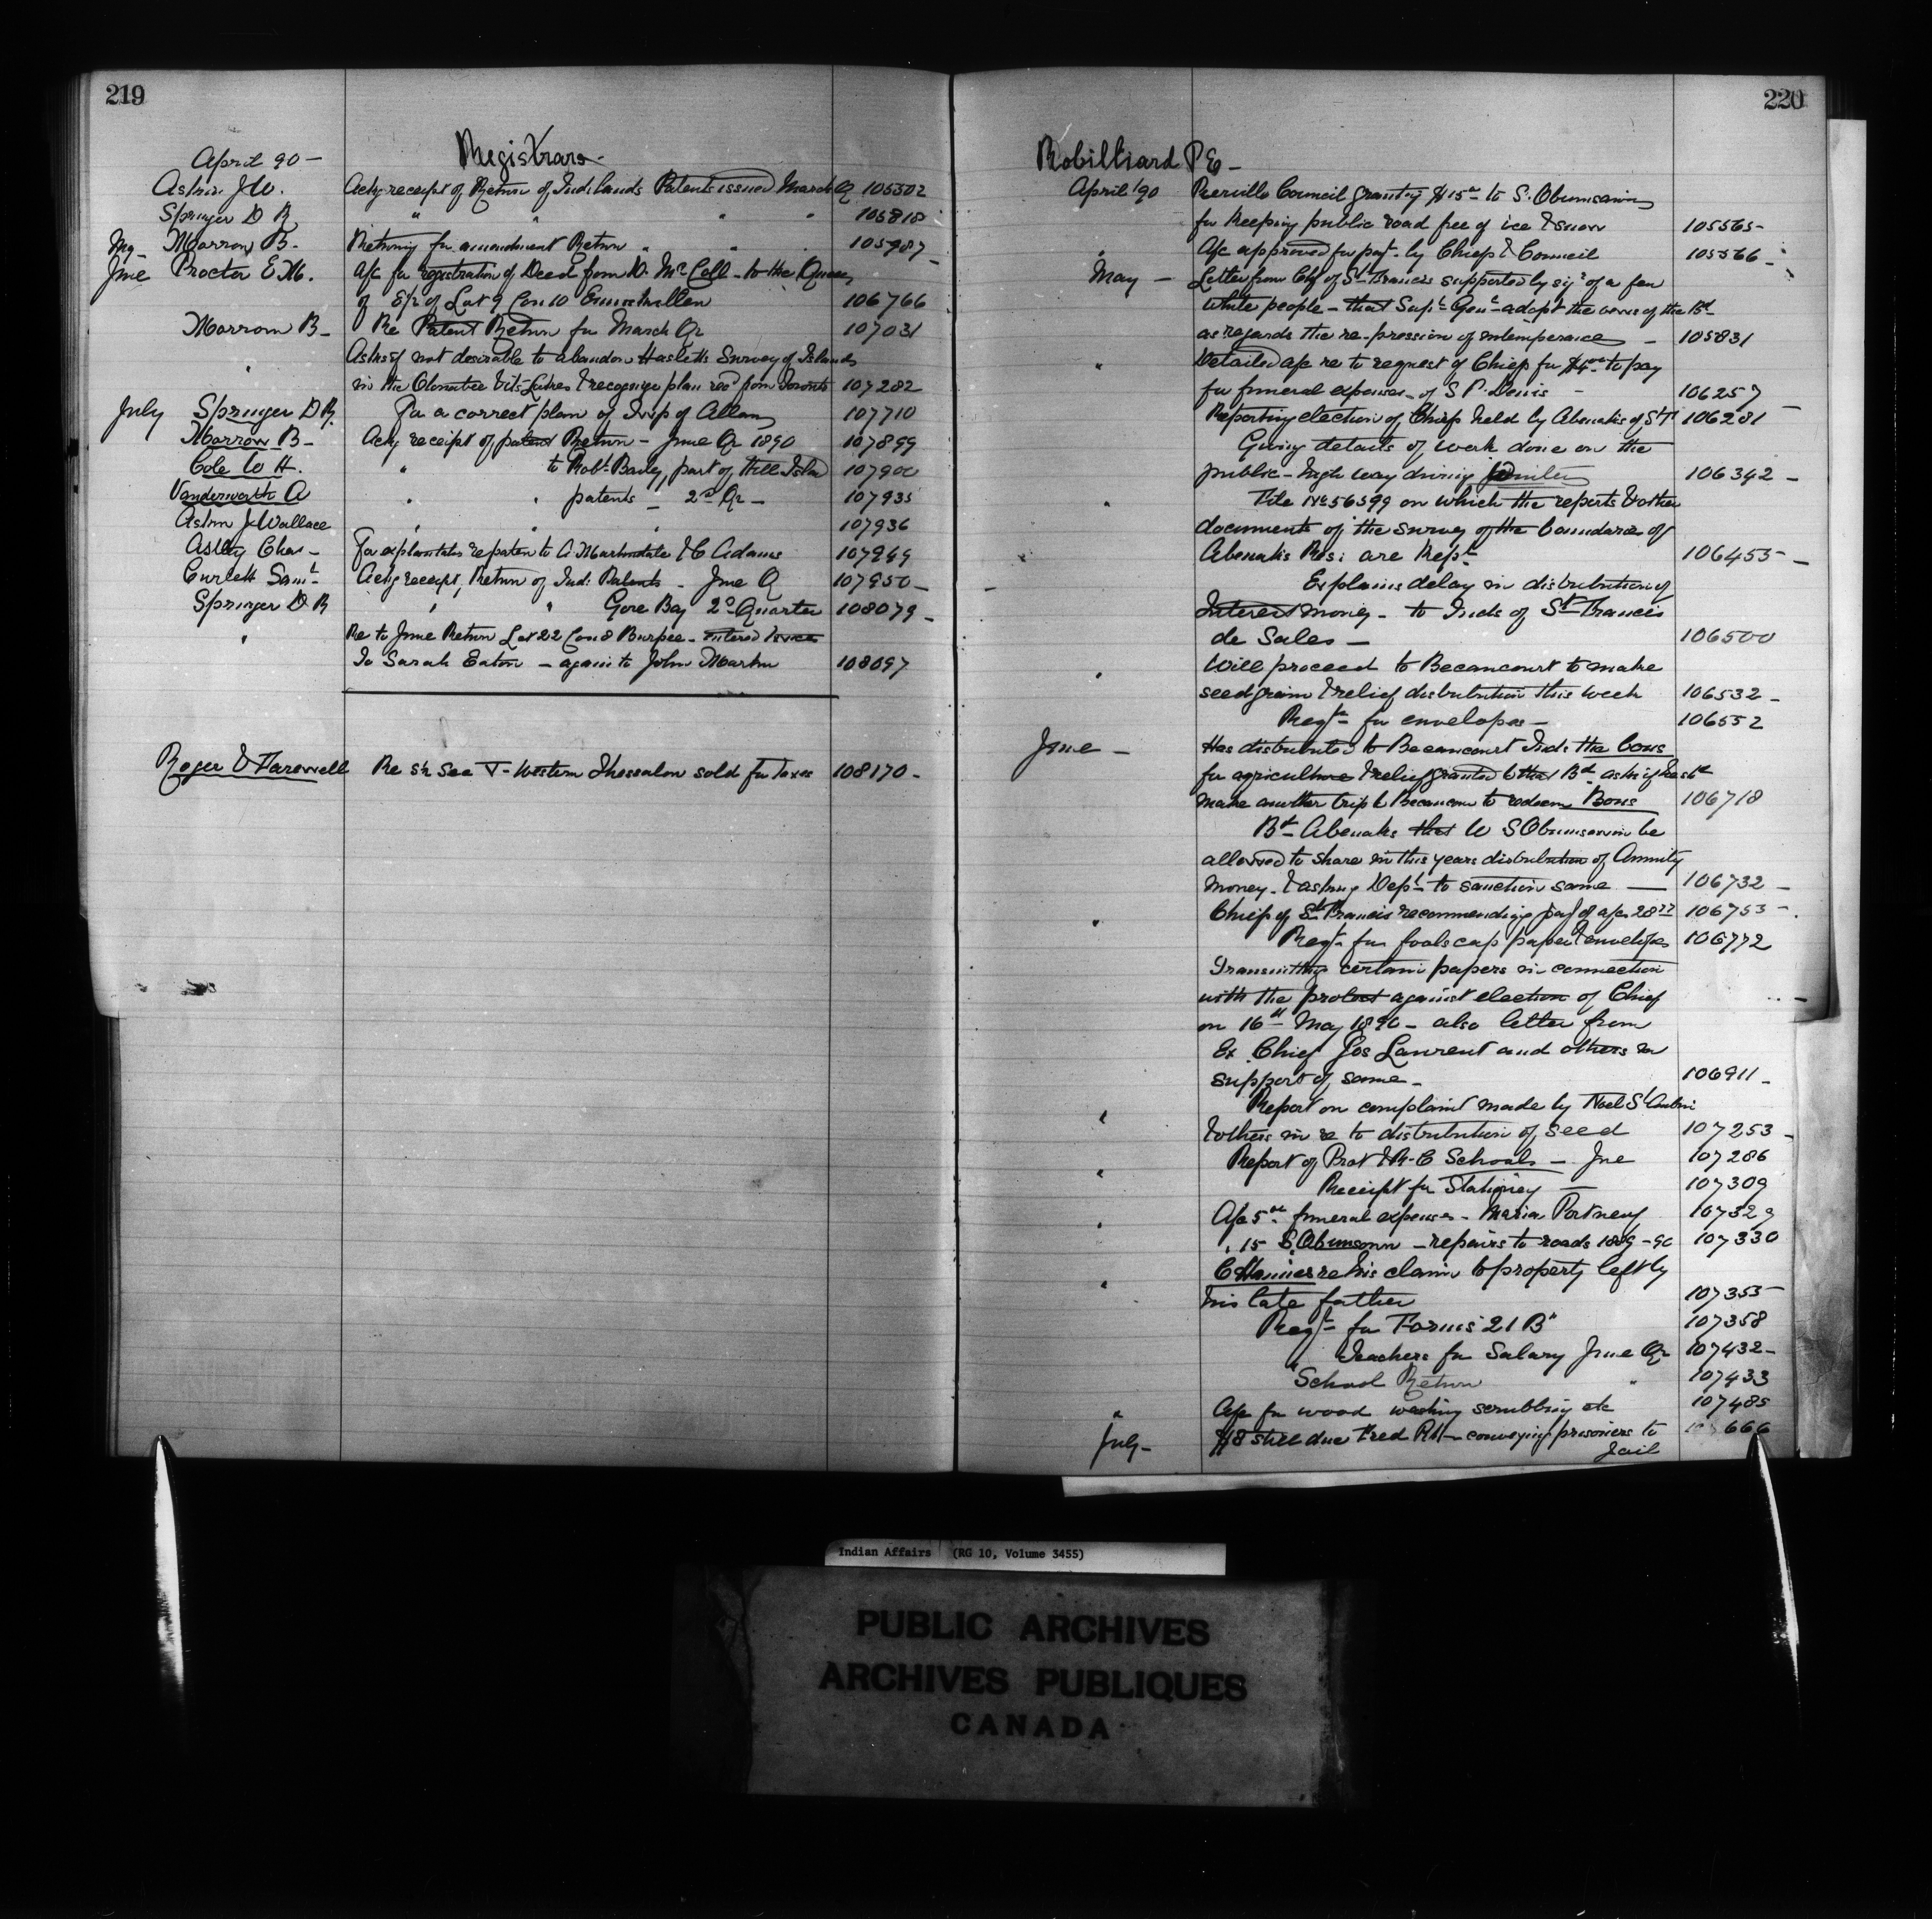 219
April 90 -
Registrars -
Aston J W. Ackg receipt of Return of Ind. Lands Patents issued March Qr 105502
Springer D R " " " " 105818
My - Morrow B - Returning for amendment Return " " " 105987 -
June Proctor E M. a/c for registration of Deed from D. McColl - to the Queen
of E½ of Lot 9 Con 10 Enniskillen 106766
Morrow B - Re Patent Return for March Qr 107031
" Asks if not desirable to abandon Hasletts Survey of Islands
in the & recognize plan recd from Toronto 107282
July Springer D R. For a correct plan of Twp of Allan 107710
Morrow B - Ackg receipt of patent Return - June Qr 1890 107899
Cole W H. " to Robt Baily, part of Hill Islan 107900
Vanderworth A " " patents - 2nd Qr - 107935
Aston J Wallace " " " 107936
Astley Chas - For explanation re patent to A Martindale & C Adams 107949
Curlett Saml - Ackg receipt, Return of Ind: Patents - June Q 107950 -
Springer D R " " Gore Bay 2nd Quarter 108079 -
" Re to June Return Lot 22 Con 8 Burpee - entered twice
To Sarah Eaton - again to John Martin 108097
Roger & Farewell Re S½ Sec 7 - Western Thessalon sold for taxes 108170 -
220
Robilliard P E -
April '90 Pierville Council granting $15 00 to S. Obumsawin
for keeping public road free of ice & snow 105565 -
" A/c approved for pay't by Chiefs & Council 105566 -
May - Letter from Chf of St Francis supported by sig's of a few
white people - that Supt Genl adopt the views of the Bd
as regards the re-pression of intemperance - 105831
" Detailed a/c re to request of Chiefs for $4 00 to pay
for funeral expenses of S P. Denis - 106257
Reporting election of Chief held by Abenakis of St F 106281 -
Giving details of work done on the
public - high way during Winter 106342 -
" File No 56599 on which the reports & other
documents of the survey of the boundaries of
Abenakis Res: are Kept 106455 -
Explains delay in distribution of
Interest money - to Inds of St Francis
de Sales - 106500
" Will proceed to Becancourt to make
seed grain & relief distribution this week 106532 -
Reqn for envelopes - 106552
June - Has distributed to Becancourt Inds the bons
for agriculture & relief granted to that Bd. asks if he shd
make another trip to Becancour to redeem Bons 106718
Bd - Abenakis that W S Obumsawin be
allowed to share in this years distribution of Annuity
money - & asking Dept to sanction same - 106732 -
" Chief of St Francis recommending pay't of a/c 28 77 106753 -
Reqn for foolscap paper & envelopes 106772
Transmitting certain papers in connection
with the protest against election of Chief
on 16th May 1890 - also letter from
Ex. Chief Jos Laurent and others in
support of same - 106911 -
" Report on complaint made by Noel St Aubin
& others in re to distribution of seed 107253 -
" Report of Prot & R.C Schools - June 107286
Receipt for Stationery - 107309
" A/c 5 00 funeral expenses - Maria Portneuf 107329
" 15 S. Obumsawin - repairs to roads 1889-90 107330
" C Hannis re his claim to property left by
his late father 107355 -
Reqn for Forms "21 B" 107358
" Teachers for Salary June Qr 107432 -
School Return " 107433
" A/c for wood washing scrubbing etc 107485
July - $8 still due Fred - conveying prisoners to 666
Jail
Indian Affairs (RG 10, Volume 3455)
PUBLIC ARCHIVES
ARCHIVES PUBLIQUES
CANADA